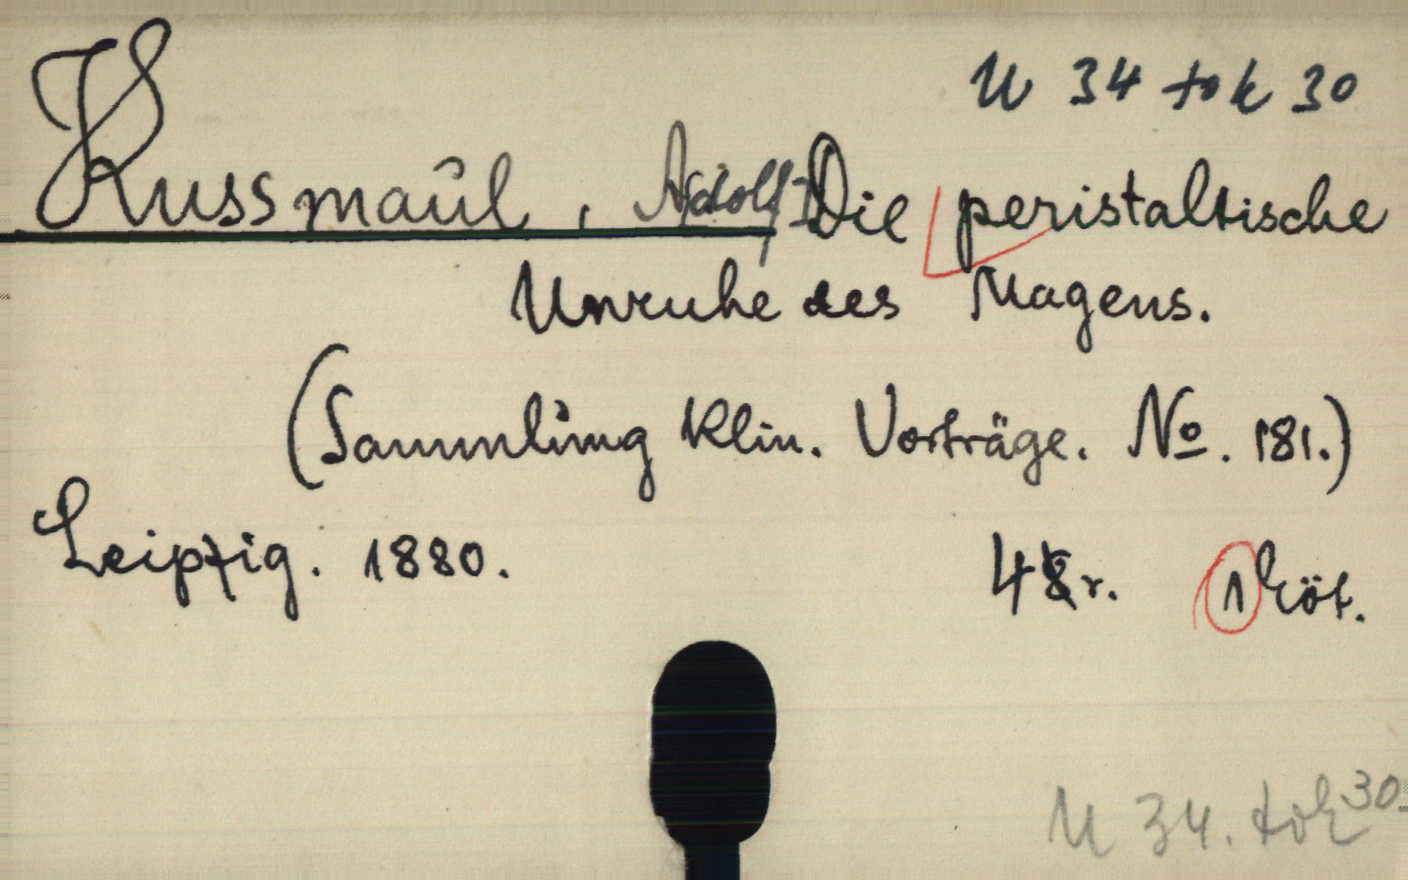 U 34 tok 30
Kussmaul, Adolf: Die peristaltische
Unruhe des Magens.
(Sammlung Klin. Vorträge. No. 181.)
Leipzig. 1880. 4 8r. 1 köt.
U 34. tok 30.